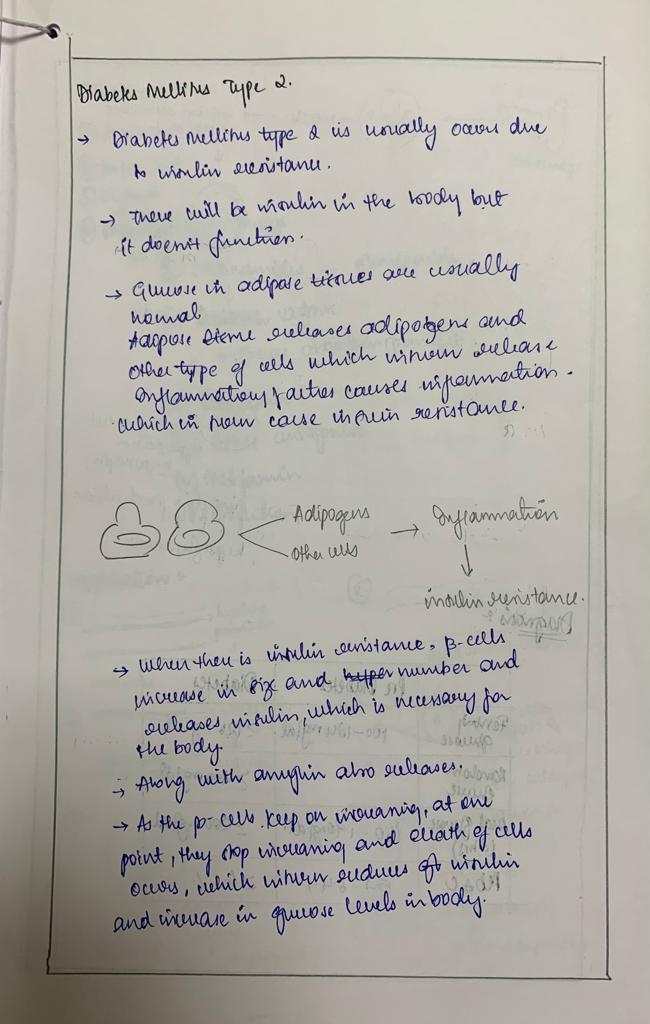 Diabetes Mellitus Type 2.
→ Diabetes Mellitus type 2 is usually occurs due
to insulin resistance.
→ There will be insulin in the body but
it doesn't function.
→ Glucose in adipose tissues are usually
normal
Adipose tissue releases adipogens and
other type of cells which inturn release
Inflammatory factors causes inflammation.
which in turn cause insulin resistance.
Adipogens
Other cells
→ Inflammation
↓
insulin resistance.
→ When there is insulin resistance, β-cells
increase in size and hyper number and
releases insulin, which is necessary for
the body.
→ Along with amylin also releases.
→ As the β-cells keep on increasing, at one
point, they stop increasing and death of cells
occurs, which inturn reduces of insulin
and increase in glucose levels in body.